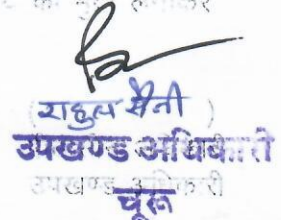 राहुल सैनी )
उपखण्ड अधिकारी
उपखण्ड अधिकारी
चूरू